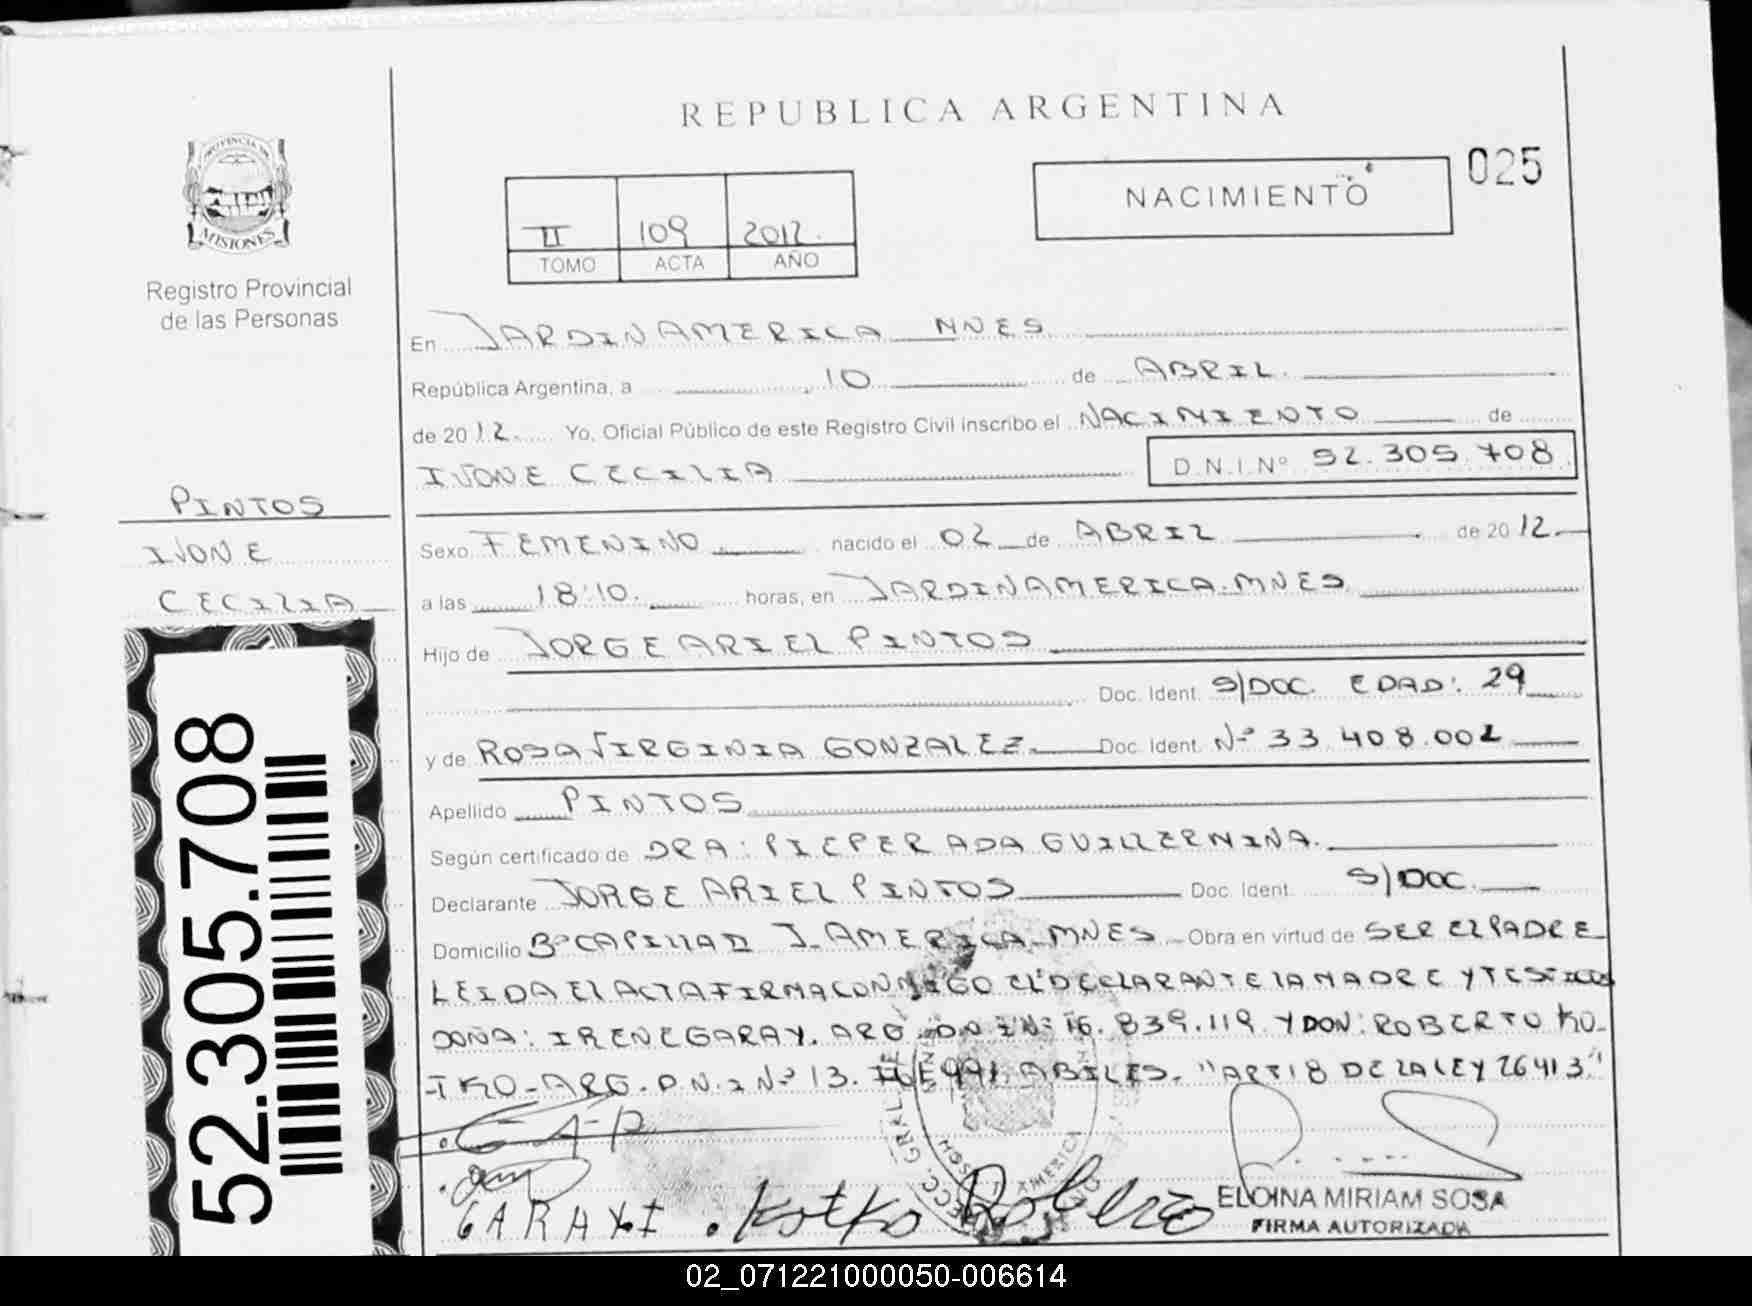 REPUBLICA ARGENTINA
025
NACIMIENTO
PROVINCIA DE
MISIONES
Registro Provincial
de las Personas
II 109 2012.
TOMO ACTA AÑO
En JARDIN AMERICA MNES
República Argentina, a 10 de ABRIL.
de 2012. Yo, Oficial Público de este Registro Civil inscribo el NACIMIENTO de
IVONE CECILIA D.N.I.Nº 52.305.708
PINTOS
IVONE
CECILIA
52.305.708
Sexo FEMENINO nacido el 02 de ABRIL de 2012.
a las 18:10. horas, en JARDIN AMERICA. MNES
Hijo de JORGE ARIEL PINTOS
Doc. Ident. S/DOC. EDAD: 29
y de ROSA VIRGINIA GONZALEZ Doc. Ident. Nº 33.408.002
Apellido PINTOS
Según certificado de DRA: PIEPER ADA GUILLERMINA.
Declarante JORGE ARIEL PINTOS Doc. Ident. S/DOC.
Domicilio Bº CAPILLA II J. AMERICA. MNES Obra en virtud de SER EL PADRE
LEIDA EL ACTA FIRMA CONMIGO EL DECLARANTE LA MADRE Y TESTIGOS
DOÑA: IRENE GARAY. ARG. DNI Nº 16.839.119 Y DON: ROBERTO KO-
TKO-ARG. D.N.I Nº 13. ABILES. "ART 18 DE LA LEY 26413"
GARAY I
Kotko Roberto
ELOINA MIRIAM SOSA
FIRMA AUTORIZADA
02_071221000050-006614